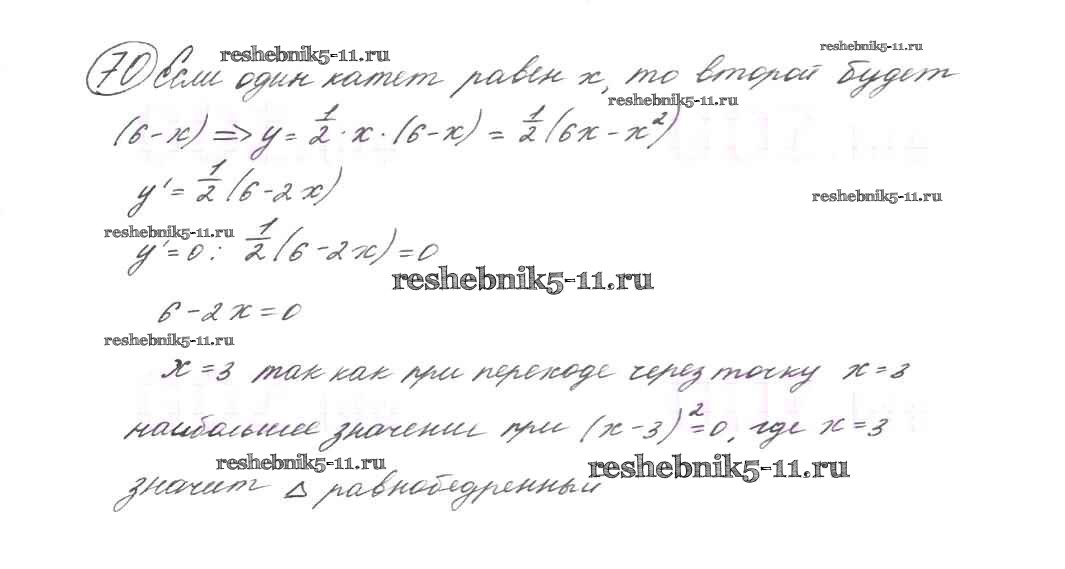 reshebnik5-11.ru
reshebnik5-11.ru
70 Если один катет равен x, то второй будет
reshebnik5-11.ru
(6-x) => y = 1/2 · x · (6-x) = 1/2 (6x - x²)
y' = 1/2 (6-2x)
reshebnik5-11.ru
reshebnik5-11.ru
y' = 0: 1/2 (6-2x) = 0
reshebnik5-11.ru
6-2x=0
reshebnik5-11.ru
x=3 так как при переходе через точку x=3
наибольшее значение при (x-3)²=0, где x=3
reshebnik5-11.ru
reshebnik5-11.ru
значит △ равнобедренный